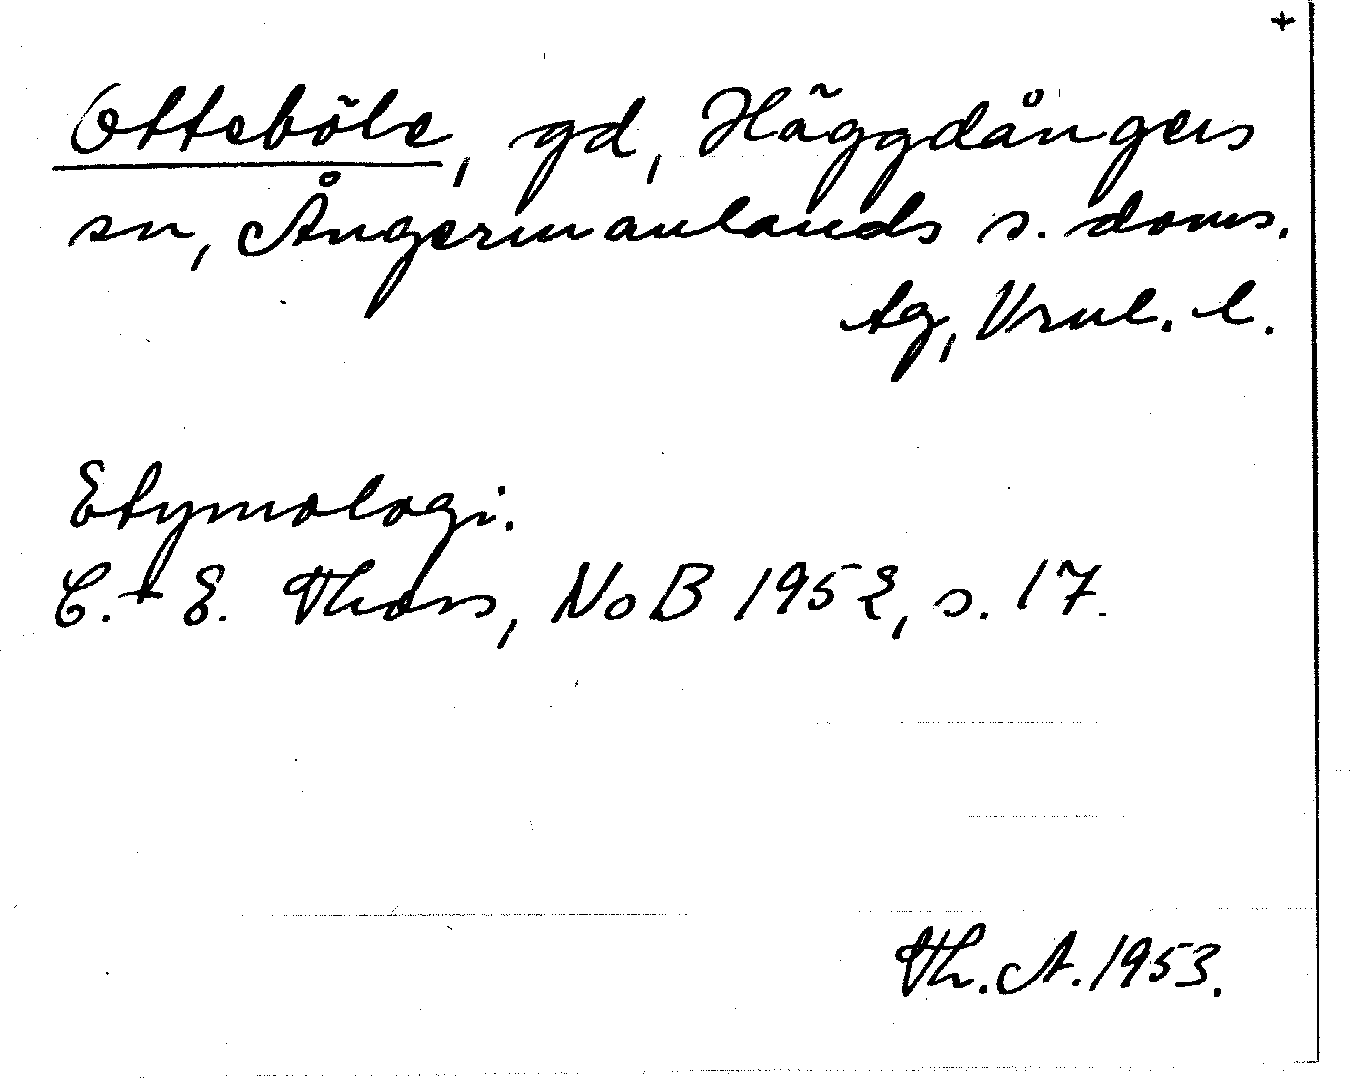 +
Otteböle, gd, Häggdångers
sn, Ångermanlands s. doms.
tg, Vrnl. l.
Etymologi.
C.-E. Thors, NoB 1952, s. 17.
Th. A. 1953.